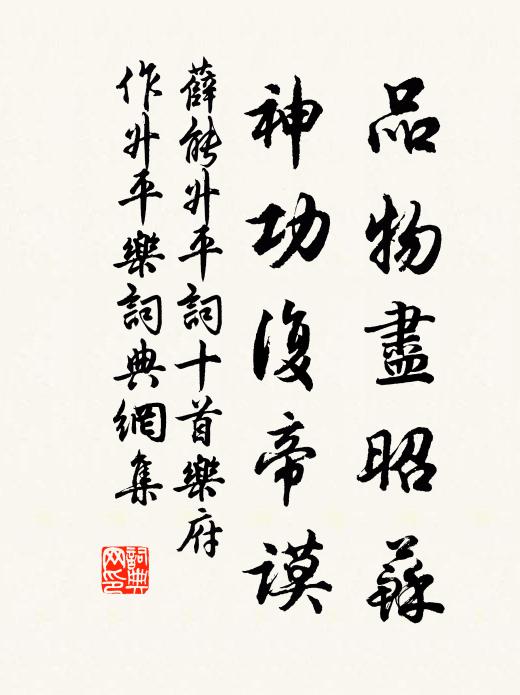 品物盡昭蘇
神功復帝謨
薛能升平詞十首樂府
作升平樂詞典網集
詞典网印